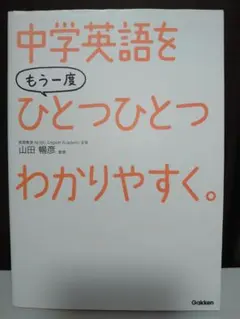 中学英語を
もう一度
ひとつひとつ
わかりやすく。
山田 暢彦 監修
Gakken